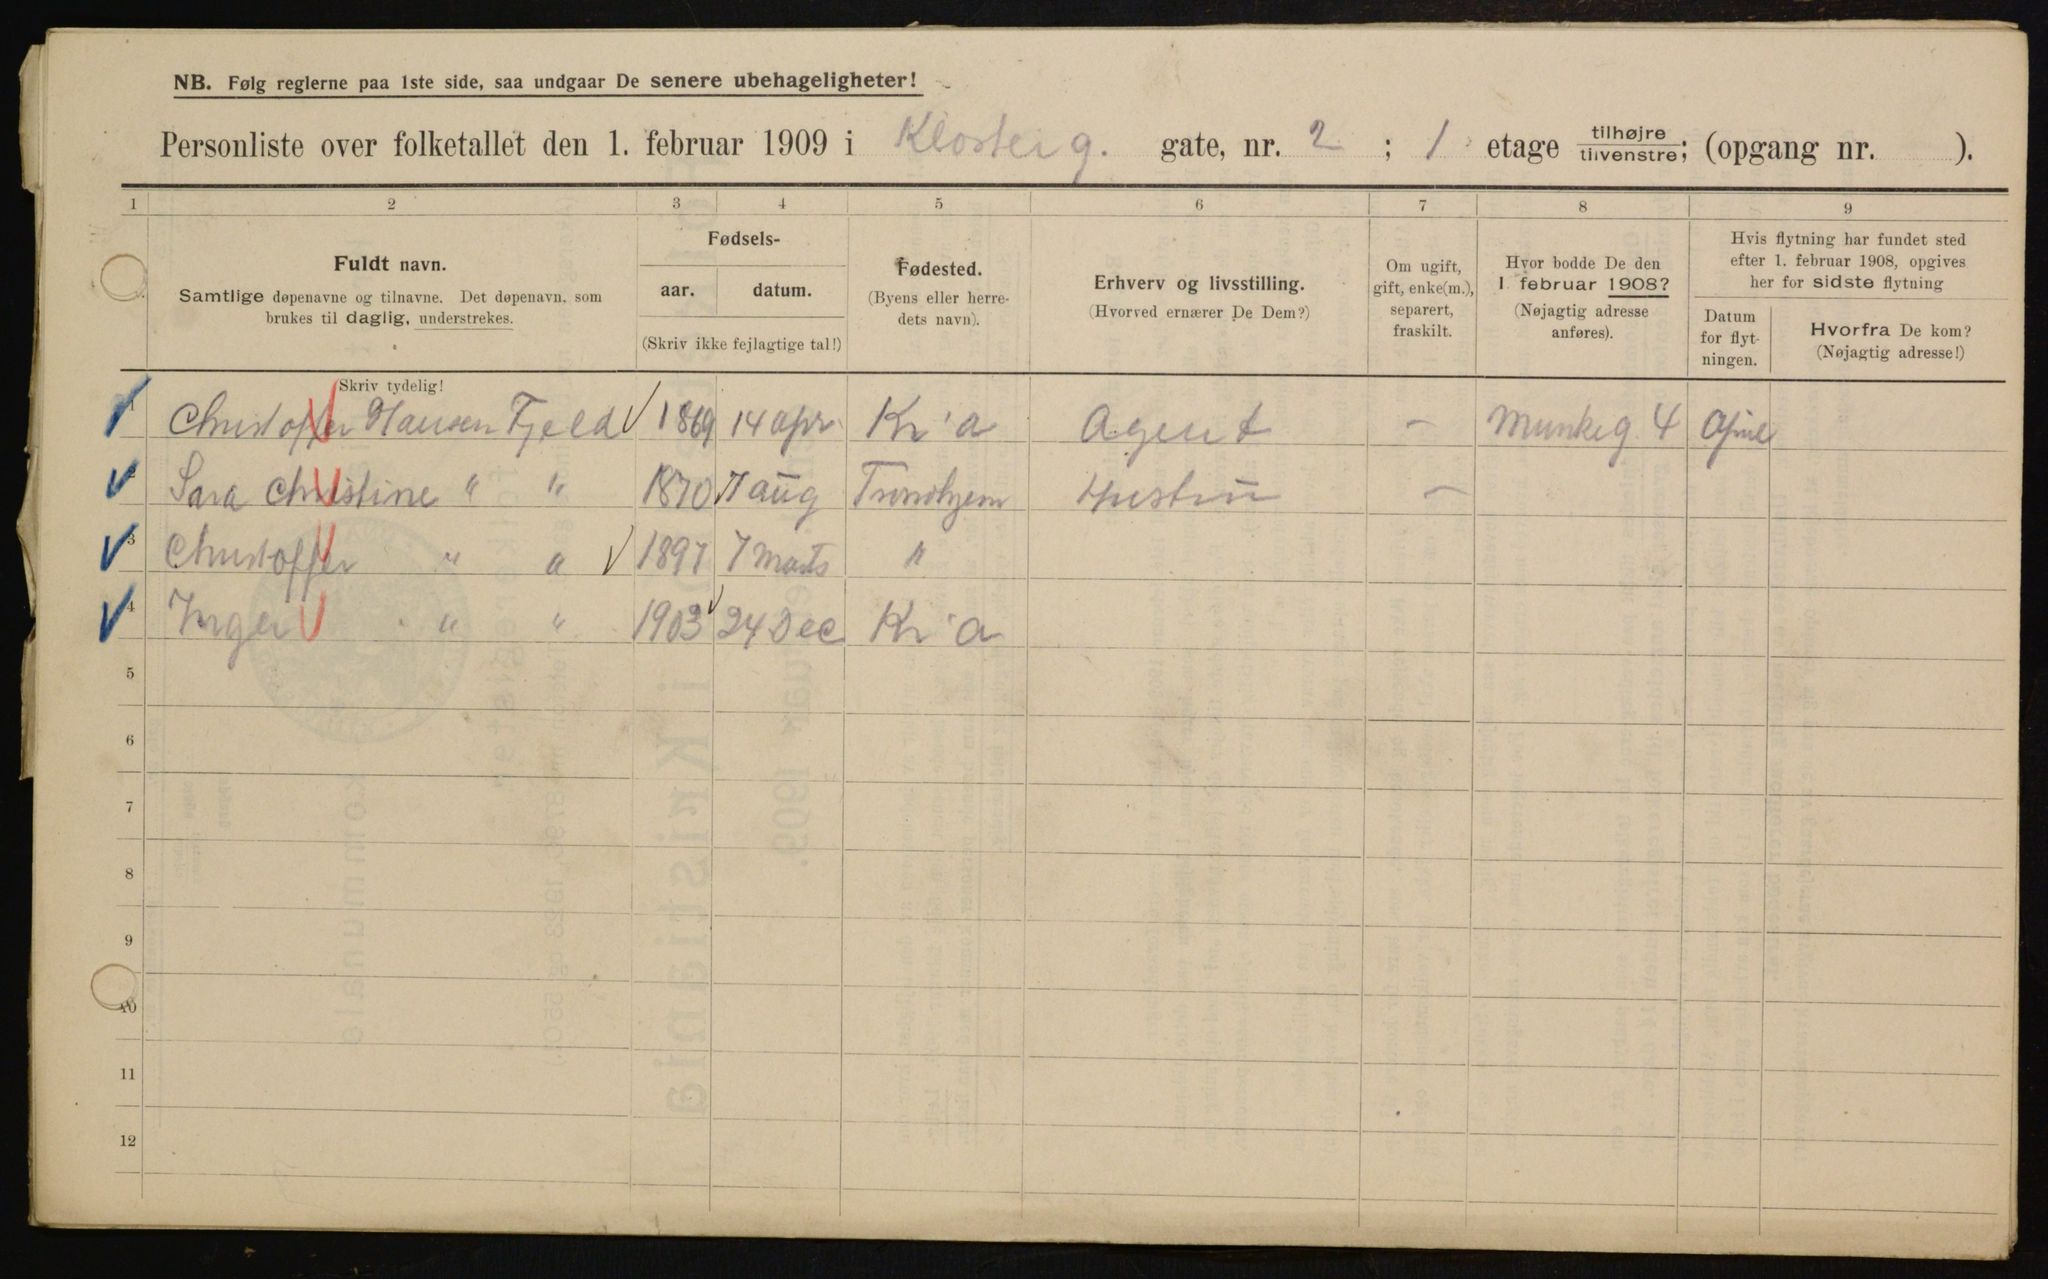 NB. Følg reglerne paa 1ste side, saa undgaar De senere ubehageligheter!
Personliste over folketallet den 1. februar 1909 i Klosterg. gate, nr. 2 ; 1 etage tilhøjre/tilvenstre; (opgang nr. ).
1 2 3 4 5 6 7 8 9
Fuldt navn.
Samtlige døpenavne og tilnavne. Det døpenavn, som
brukes til daglig, understrekes.
Fødsels-
aar. datum.
(Skriv ikke fejlagtige tal!)
Fødested.
(Byens eller herre-
dets navn).
Erhverv og livsstilling.
(Hvorved ernærer De Dem?)
Om ugift,
gift, enke(m.),
separert,
fraskilt.
Hvor bodde De den
1. februar 1908?
(Nøjagtig adresse
anføres).
Hvis flytning har fundet sted
efter 1. februar 1908, opgives
her for sidste flytning
Datum
for flyt-
ningen.
Hvorfra De kom?
(Nøjagtig adresse!)
Skriv tydelig!
1 Christoffer Hansen Fjeld 1869 14 apr Kr'a Agent - Munkeg 4
2 Sara Christine " " 1870 7 aug Trondhjem Hustru -
3 Christoffer " " 1897 7 Marts "
4 Inger " " 1903 24 Dec Kr'a
5
6
7
8
9
10
11
12